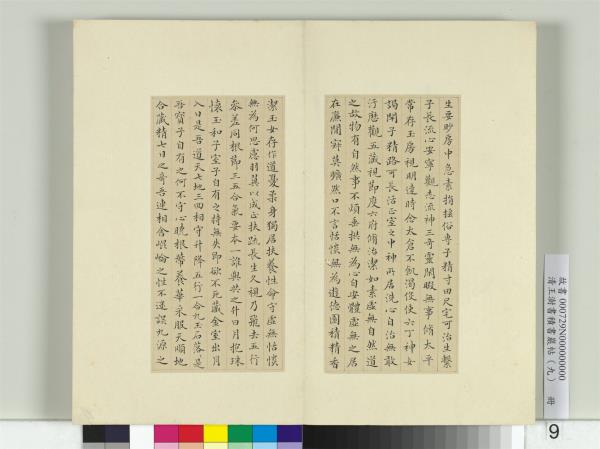 生要眇房中急棄捐搖俗專子精寸田尺宅可治生繫
子長流心安寧觀志流神三奇靈閒暇無事脩太平
常存玉房視明達時念太倉不飢渴役使六丁神女
謁閉子精路可長活正室之中神所居洗心自治無敢
汙歷觀五藏視節度六府脩治潔如素虛無自然道
之故物有自然事不煩垂拱無為心自安體虛無之居
在廉閒寂莫曠然口不言恬惔無為遊德園積精香
潔玉女存作道憂柔身獨居扶養性命守虛無恬惔
無為何思慮羽翼以成正扶疏長生久視乃飛去五行
參差同根節三五合氣要本一誰與共之升日月抱珠
懷玉和子室子自有之持無失即欲不死藏金室出月
入日是吾道天七地三回相守升降五行一合九玉石落是
吾寶子自有之何不守心曉根蒂養華采服天順地
合藏精七日之奇吾連相舍崐崘之性不迷誤九源之
故書 000729N000000000
清王澍書積書巖帖(九) 冊
9